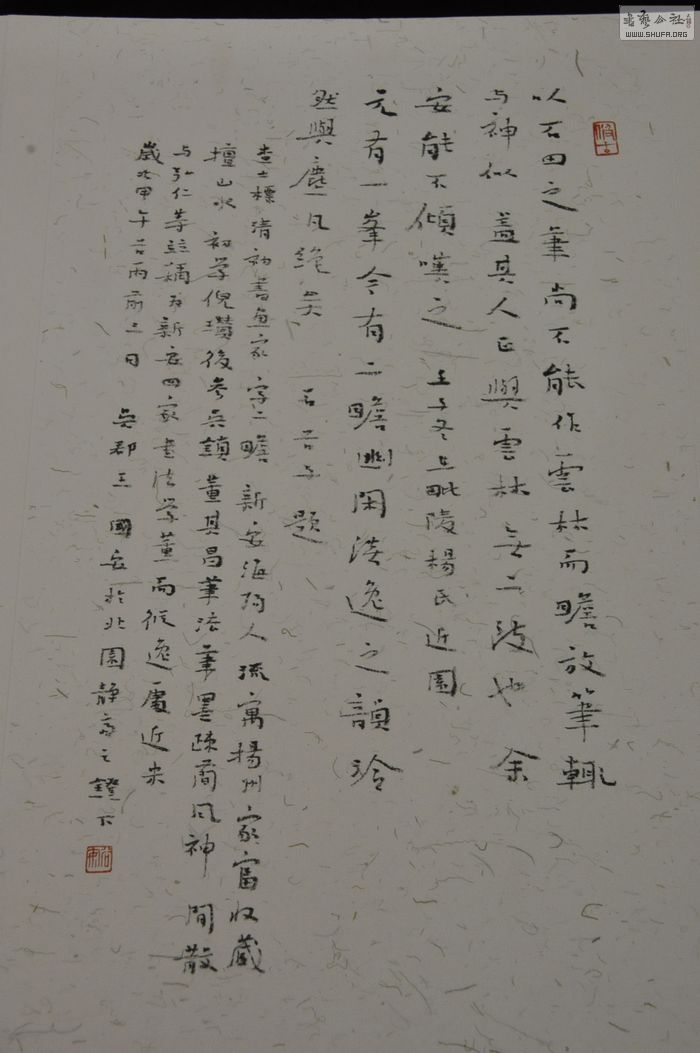 以石田之筆尚不能作雲林而瞻放筆輒
与神似蓋其人正與雲林無二致也余
安能不傾嘆之壬子冬在毗陵楊氏近園
元有一峯今有二瞻幽閑淡逸之韻泠
然與塵凡絶矣 石谷子題
查士標清初書画家字二瞻新安海陽人流寓揚州家富收藏
擅山水初学倪瓚後参吳鎮董其昌筆法筆墨疎簡風神閒散
与弘仁等並稱为新安四家書法学董而縱逸處近米
歲次甲午谷雨前二日吳郡王國安於北園静斋之鐙下
書藝公社
WWW.SHUFA.ORG